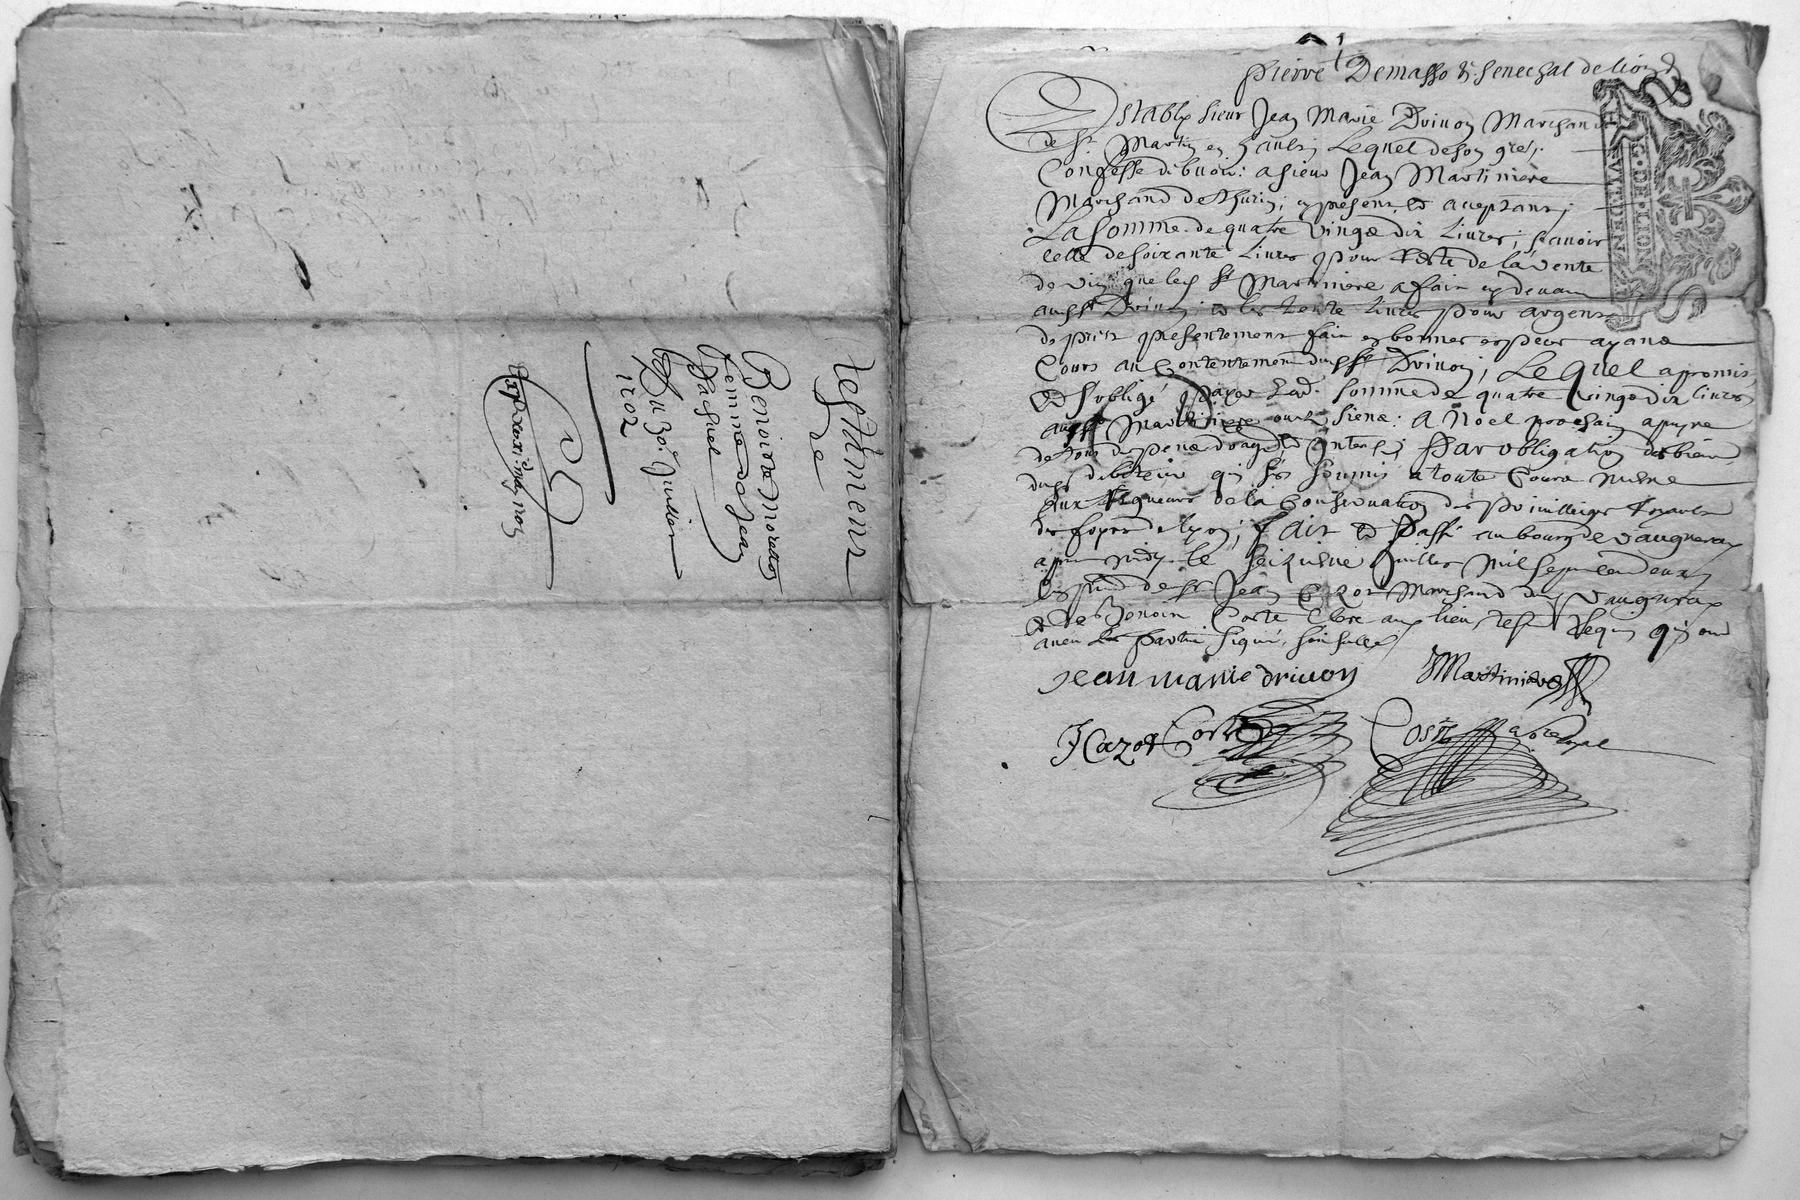 Testament
de
Benoiste Moretton
femme de Jean
Bachuel
Du 30e Juillet
1702
Pierre Demasso &. senechal de lion
Establý sieur Jean Marie Drivon Marchand
de St Martin en hault; Lequel de son gré;
Confesse debvoir: a sieur Jean Martiniere
Marchand de Thurin; cy present, et acceptant;
La somme de quatre vingt dix Livres; scavoir
celle de soixante Livres pour reste de la vente
de vin que led sr Martiniere a fait cy devant
aud sr Drivon; et les trente livres pour argent
de prest presentement fait en bonnes especes ayant
Cours au Contentement dud sr Drivon; Lequel a promis
et s'oblige payer lad. somme de quatre vingt dix livres
aud sr Martiniere ou es siens: a Noel prochain a peyne
de tous despens domages et Interests; Par obligation des biens
dud debiteur qui s'est soumis a toute Cours mesme
aux rigueurs de la Conservation des privilleiges royaulx
des foyres de Lyon; Fait et Passé au bourg de Vaugneray
apres midy le seizieme Juillet Mil sept cent deux
En presence de sr Jean Cazot Marchand dud Vaugneray
et de Benoit Coste Clerc aud lieu tesmoins Requis qui ont
avec les parties signé,
Jean marie drivon
JMartiniere
JCazot
Coste
Coste
VILLE.ET.DE.LION